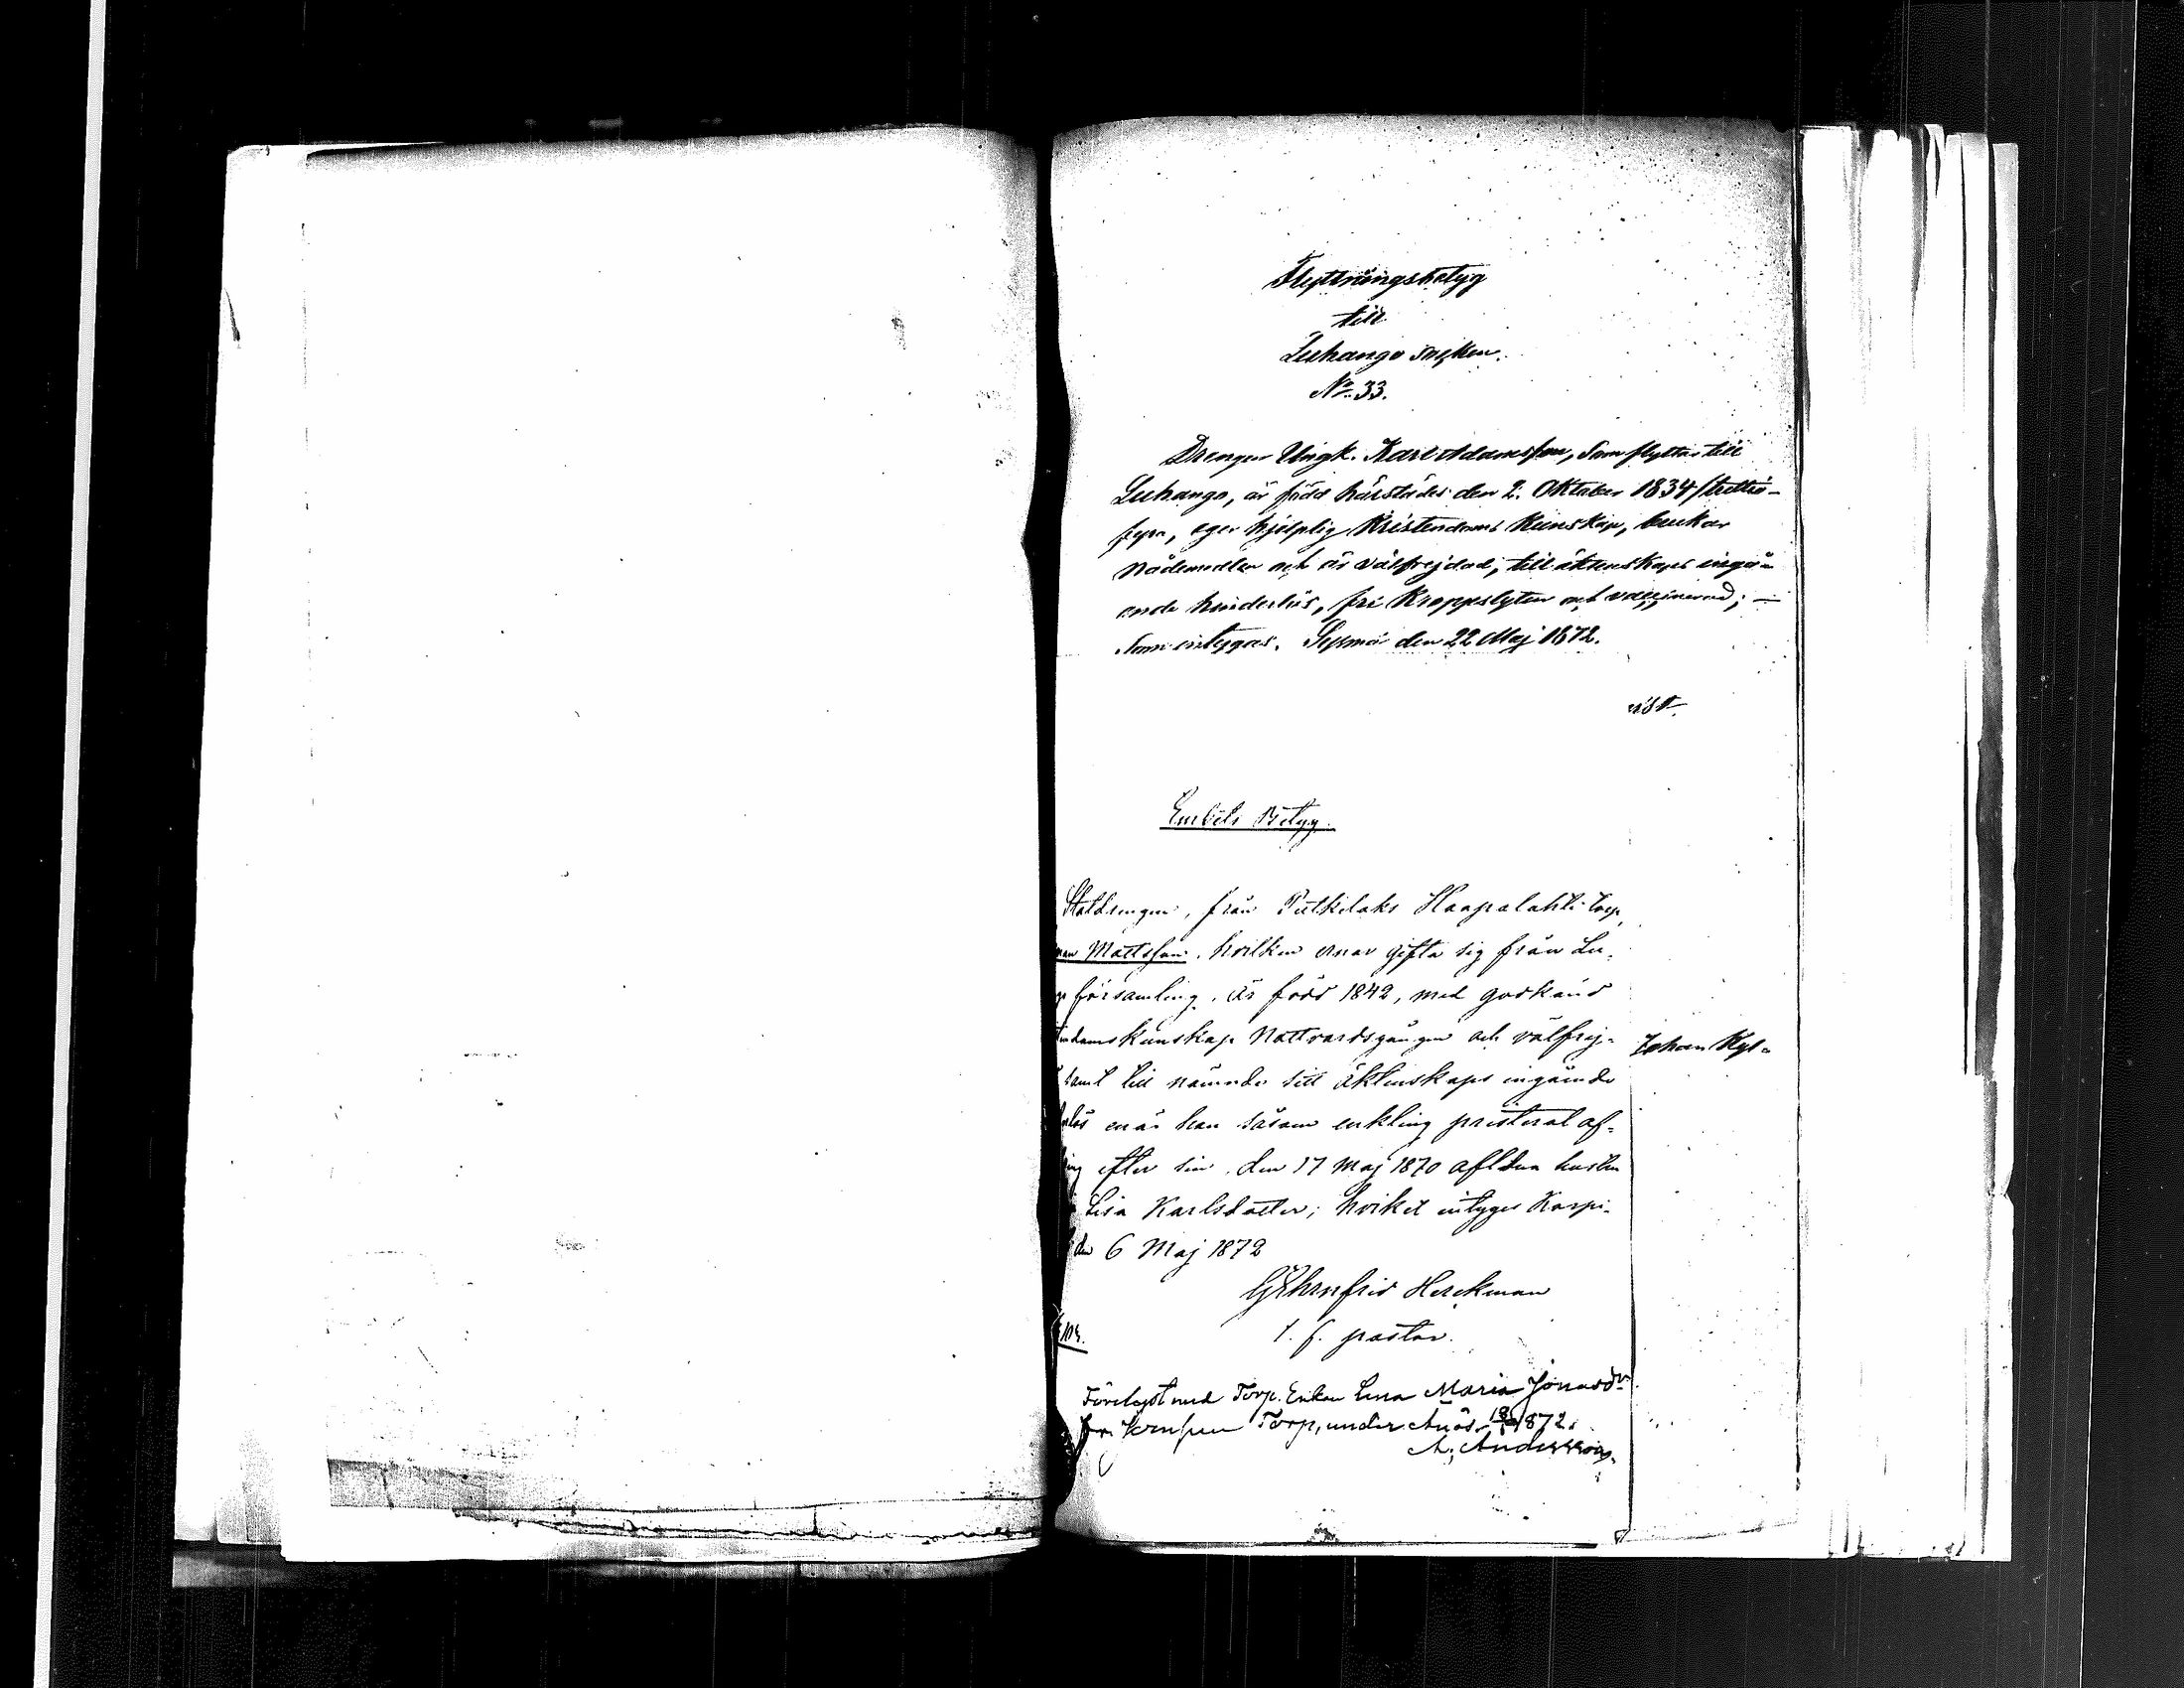 Flyttningsbetyg
till
Luhango socken.
No. 33.
Drengen Ungk. Karl Adamsson, som flyttar till
Luhango, är född härstädes den 2. Oktober 1834
eger hjelplig Kristendoms Kunskap, brukar
Nådemedlen och är välfrejdad, till äktenskaps ingå-
ende hinderlös, fri Kroppslyten och vaccinerad; —
Som intygas. Sysmä den 22 Maj 1872.
vist.
Embets Betyg.
Statdrengen, från Putkilaks Haapalahti Torp,
Mattsson, hvilken ärnar gifta sig från Lu-
församling, är född 1842, med godkänd
damskunskap Nattvardsgången och välfrej-
Johan Kyl-
samt till nämnde sitt äktenskaps ingående
lös enär han såsom enkling presterat af-
efter sin, den 17 Maj 1870 aflidna hustru
Lisa Karlsdotter; hvilket intyges Korpi-
den 6 Maj 1872
Gehrnfrid Herckman
t. f. pastor.
Förelyst med Torp. Enkan Lena Maria Jonasdr
Torp, under 1872.
A. Andersson.